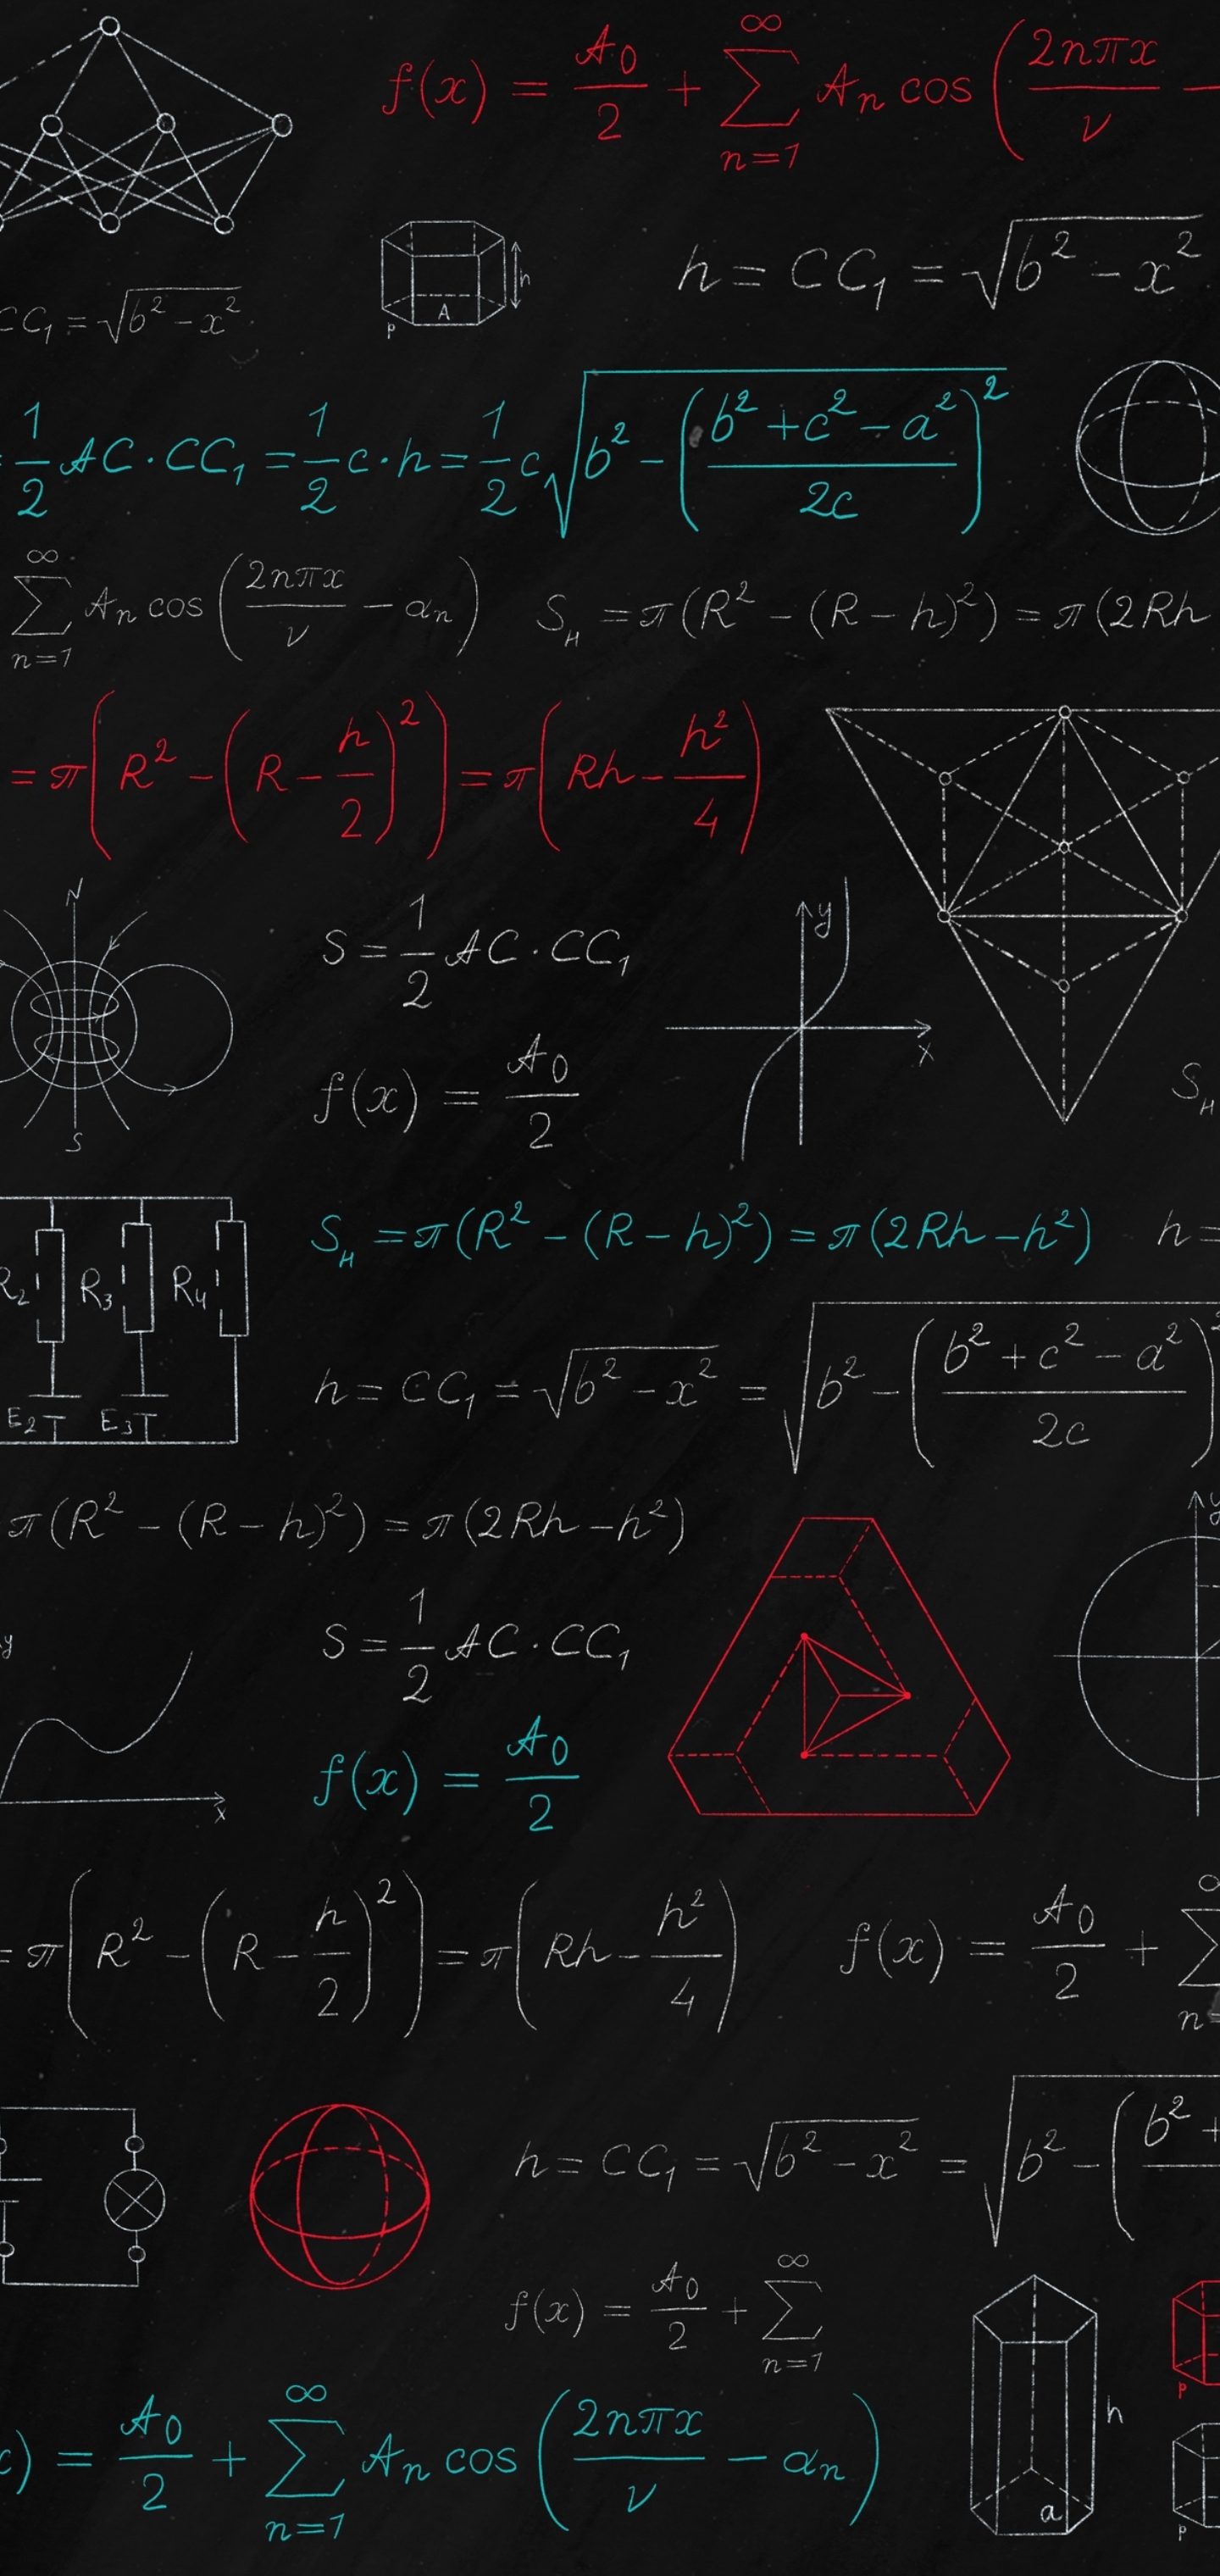 f(x) = A₀/2 + ∑ₙ₌₁^∞ Aₙ cos (2nπx/ν −
h = CC₁ = √(b² − x²)
h
A
P
CC₁ = √(b² − x²)
1/2 AC · CC₁ = 1/2 c · h = 1/2 c √(b² − ((b² + c² − a²)/2c)²)
∑ₙ₌₁^∞ Aₙ cos (2nπx/ν − αₙ)
S_H = π(R² − (R − h)²) = π(2Rh
= π(R² − (R − h/2)²) = π(Rh − h²/4)
N
S
S = 1/2 AC · CC₁
y
x
f(x) = A₀/2
S_H
R₂ R₃ R₄
E₂ E₃
S_H = π(R² − (R − h)²) = π(2Rh − h²)
h =
h = CC₁ = √(b² − x²) = √(b² − ((b² + c² − a²)/2c)²
π(R² − (R − h)²) = π(2Rh − h²)
y
S = 1/2 AC · CC₁
y
x
f(x) = A₀/2
= π(R² − (R − h/2)²) = π(Rh − h²/4)
f(x) = A₀/2 + ∑
n=
h = CC₁ = √(b² − x²) = √(b² − (b² +
f(x) = A₀/2 + ∑ₙ₌₁^∞
h
a
P
P
x) = A₀/2 + ∑ₙ₌₁^∞ Aₙ cos (2nπx/ν − αₙ)